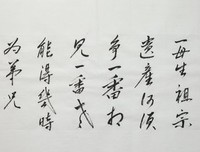 一母生祖宗
遺產何須
爭一番相
見一番老
能得幾時
為弟兄